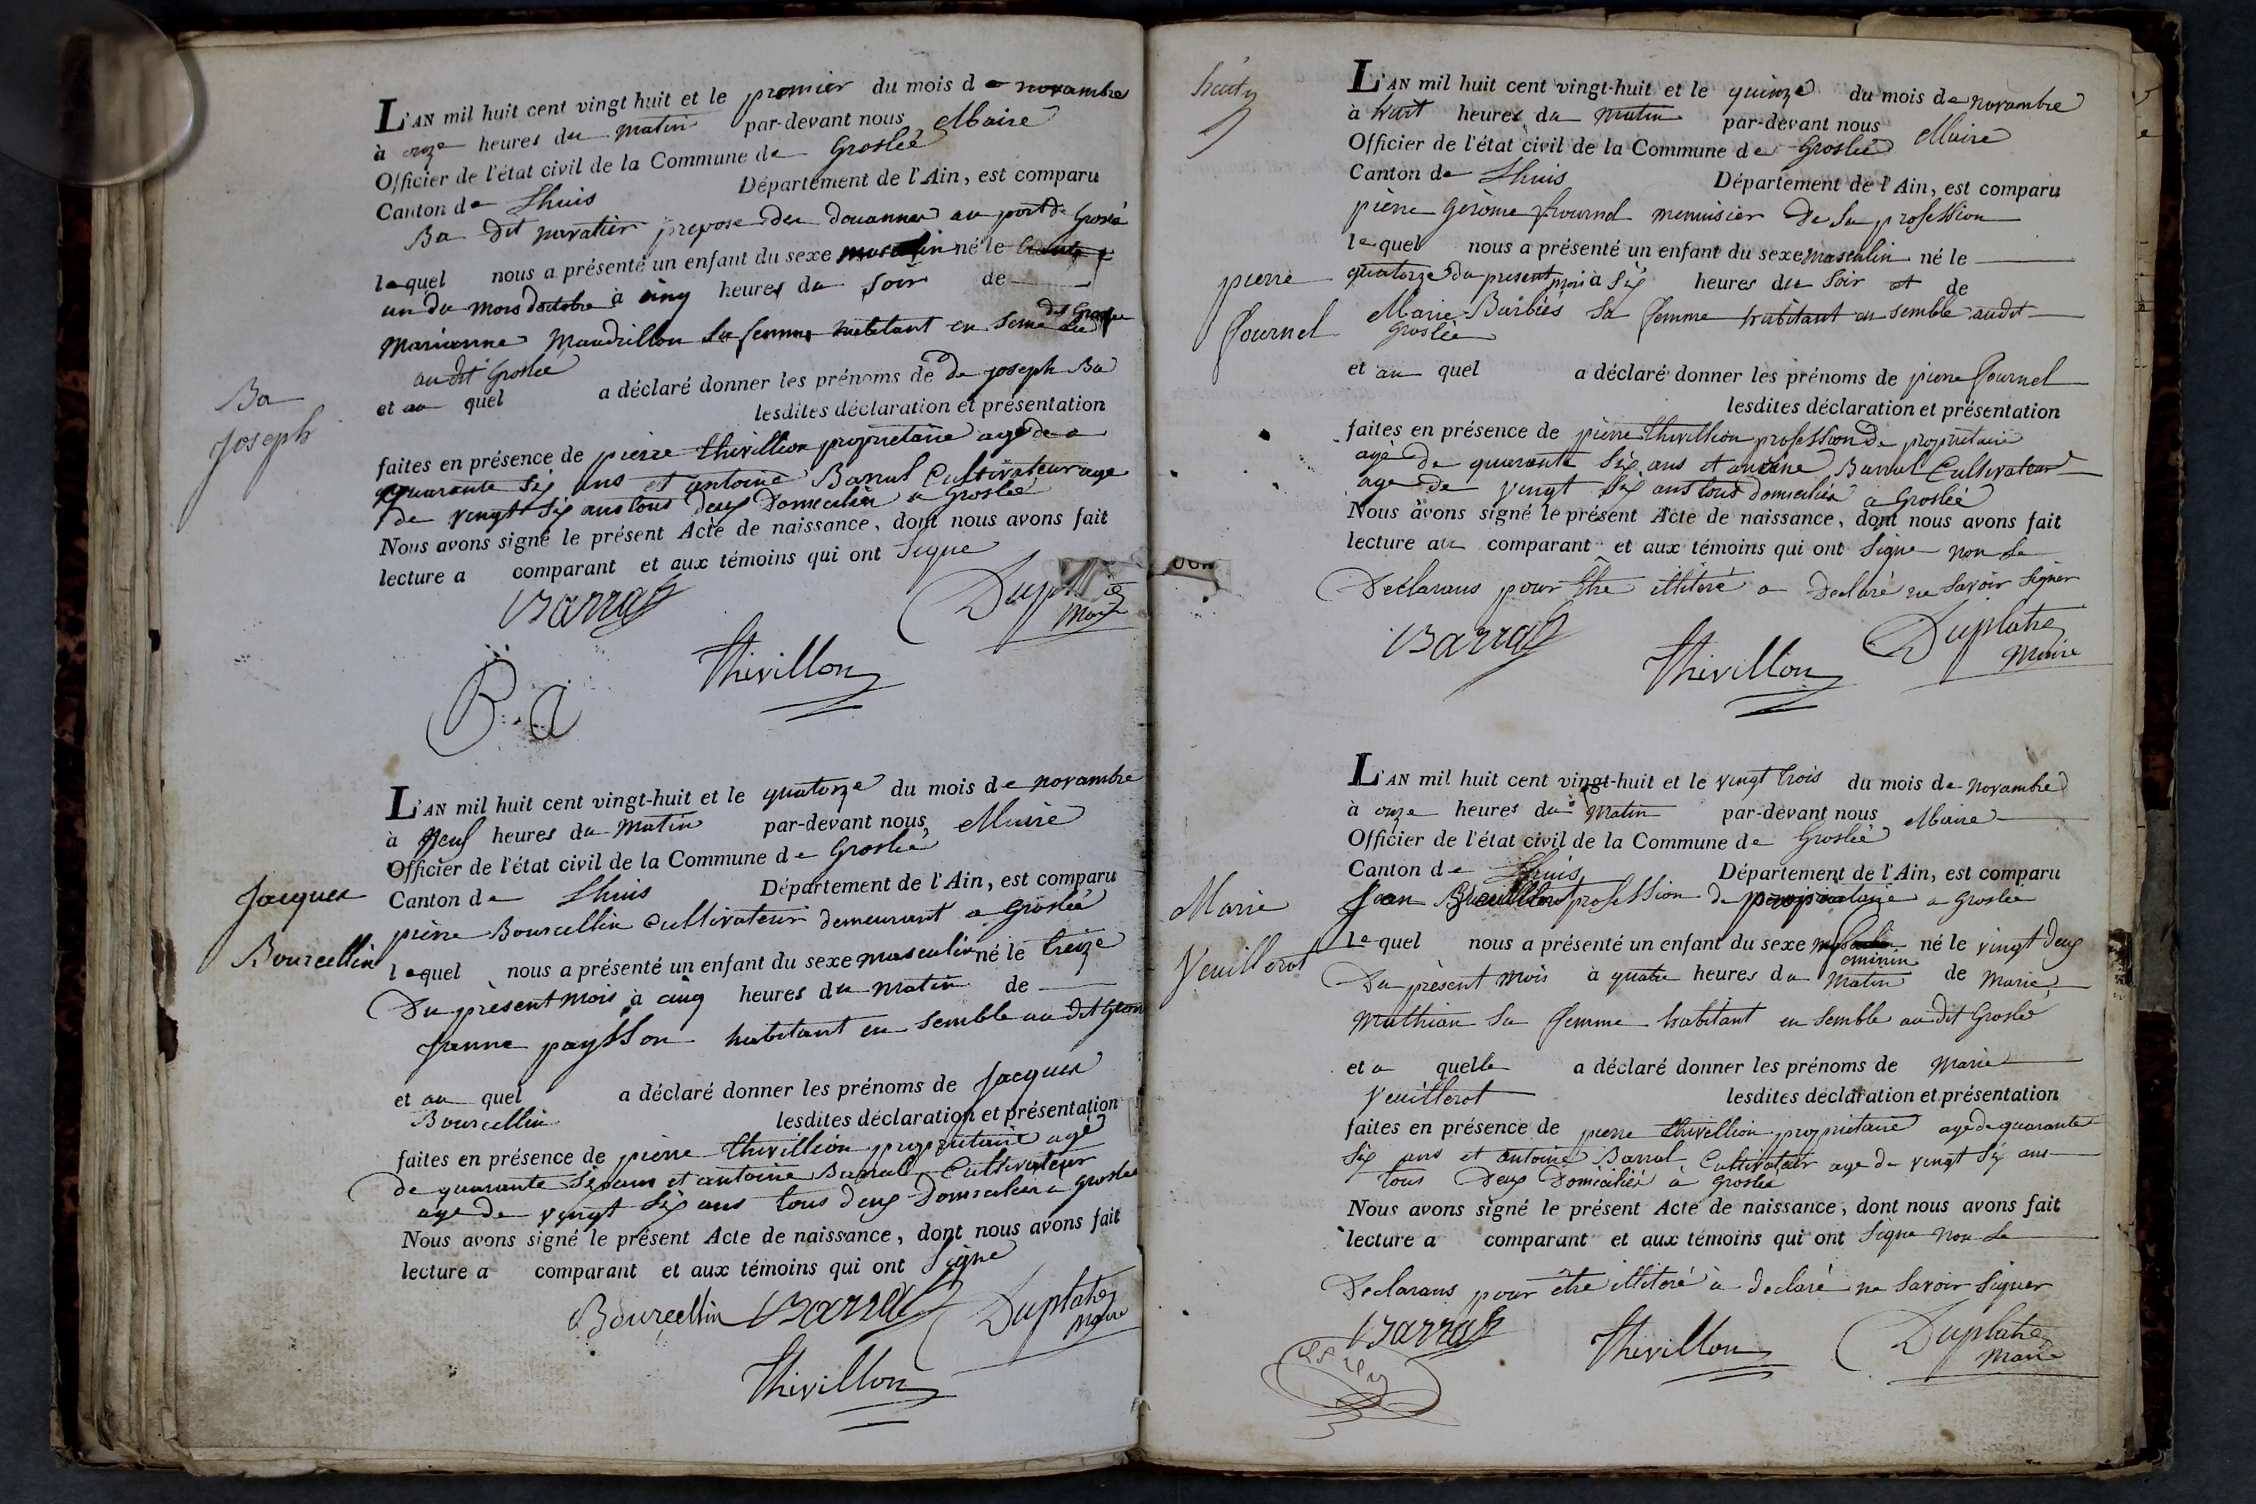 L'AN mil huit cent vingt huit et le premier du mois de novambre
à onze heures du matin par-devant nous Maire
Officier de l'état civil de la Commune de Groslée
Canton de Lhuis Département de l'Ain, est comparu
Ba dit navatier prepose des douannes au port de Groslé
lequel nous a présenté un enfant du sexe masculin né le trente
un du mois doctobre à cinq heures du soir de
marianne Maudrillon sa femme habitant en semble
au dit Groslée
Ba
Joseph
et au quel a déclaré donner les prénoms de de joseph Ba
lesdites déclaration et présentation
faites en présence de pierre thivillion propriétaire agé de
quarante six ans et antoine Barral Cultivateur age
de vingt six ans tous deux Domiciliés a Groslée
Nous avons signé le présent Acte de naissance, dont nous avons fait
lecture a comparant et aux témoins qui ont Signe
Barral
Maire
Thivillon
Ba
L'AN mil huit cent vingt-huit et le quatorze du mois de novambre
à Neuf heures du Matin par-devant nous, Maire
Officier de l'état civil de la Commune de Groslée
Jacques
Canton de Lhuis Département de l'Ain, est comparu
pierre Bourcellin Cultivateur demeurant a Groslée
Bourcellin
lequel nous a présenté un enfant du sexe masculin né le treize
Du présent mois à cinq heures du matin de
Jeanne paysson habitant en semble au dit
et au quel a déclaré donner les prénoms de Jacques
Bourcellin lesdites déclaration et présentation
faites en présence de pierre thivillion propriétaire agé
de quarante six ans et antoine Barral Cultivateur
age de vingt six ans tous deux Domiciliés a Groslée
Nous avons signé le présent Acte de naissance, dont nous avons fait
lecture a comparant et aux témoins qui ont Signe
Bourcellin Barral Duplatre
Maire
Thivillon
L'AN mil huit cent vingt-huit et le quinze du mois de novambre
à huit heures du matin par-devant nous Maire
Officier de l'état civil de la Commune de Groslée
Canton de Lhuis Département de l'Ain, est comparu
pierre gerome fournel menuisier de sa profession
lequel nous a présenté un enfant du sexe masculin né le
pierre
quatorze du present mois à six heures du soir et de
Marie Barbiés sa femme habitant en semble audit
fournel
Groslée
et au quel a déclaré donner les prénoms de pierre fournel
lesdites déclaration et présentation
faites en présence de pierre thivillion profession de propriétaire
agé de quarante six ans et antoine Barral Cultivateur
age de vingt six ans tous domiciliés a Groslée
Nous avons signé le présent Acte de naissance, dont nous avons fait
lecture au comparant et aux témoins qui ont Signe non le
Déclarans pour être illitéré a Declaré ne savoir signer
Barral
Duplatre
Maire
Thivillon
L'AN mil huit cent vingt-huit et le vingt trois du mois de novambre
à onze heures du Matin par-devant nous Maire
Officier de l'état civil de la Commune de Groslée
Canton de Lhuis Département de l'Ain, est comparu
Marie
Jean profession de propriétaire a Groslée
lequel nous a présenté un enfant du sexe né le vingt deux
feminin
Veuillerot
Du présent mois à quatre heures du Matin de Marie
Mathian sa femme habitant en semble au dit Groslé
et a quelle a déclaré donner les prénoms de Marie
Veuillerot lesdites déclaration et présentation
faites en présence de pierre thivellion propriétaire agé de quarante
six ans et antoine Barral Cultivateur age de vingt six ans
tous deux Domiciliés à Groslée
Nous avons signé le présent Acte de naissance, dont nous avons fait
lecture a comparant et aux témoins qui ont Signe non le
Declarans pour être illitéré à declaré ne savoir signer
Barral
Thivillon
Duplatre
Maire